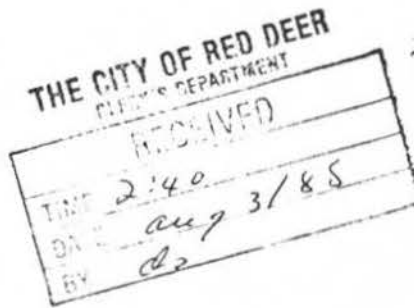 THE CITY OF RED DEER
CLERK'S DEPARTMENT
RECEIVED
TIME 2:40
DATE aug 3/85
BY